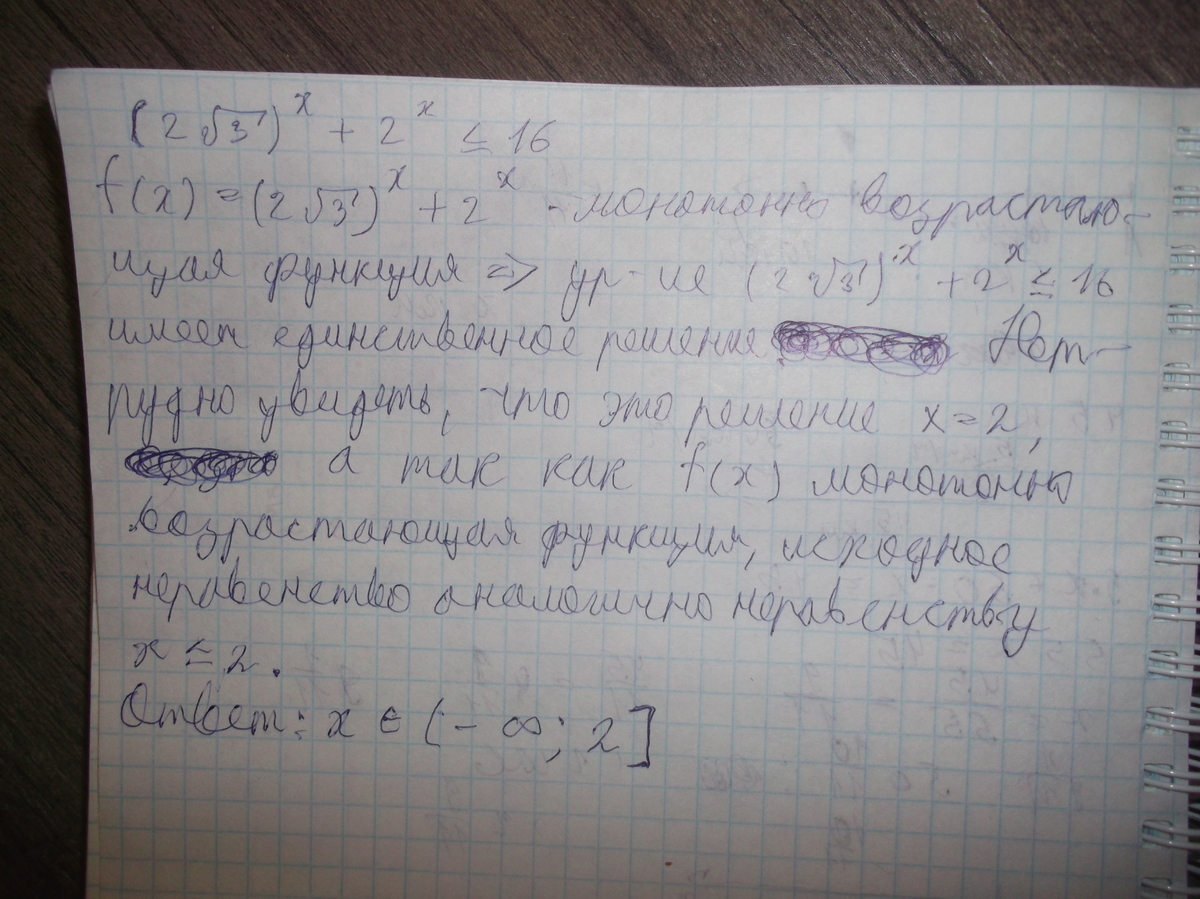 (2√3)^x + 2^x ≤ 16
f(x) = (2√3)^x + 2^x - монотонно возрастаю-
щая функция => ур-ие (2√3)^x + 2^x ≤ 16
имеет единственное решение Нет-
рудно увидеть, что это решение x = 2,
а так как f(x) монотонно
возрастающая функция, исходное
неравенство аналогично неравенству
x ≤ 2.
Ответ: x ∈ (- ∞; 2]